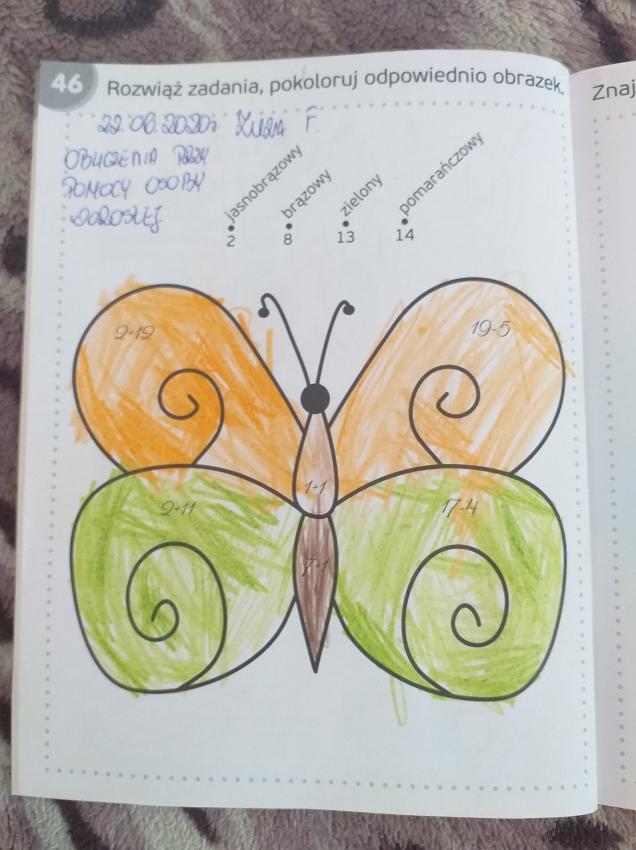 46 Rozwiąż zadania, pokoloruj odpowiednio obrazek. Znaj
22.06.2020r Zuzia F.
OBLICZENIA PRZY
POMOCY OSOBY
DOROSŁEJ
jasnobrązowy brązowy zielony pomarańczowy
2 8 13 14
2+12 19-5
1+1
2+11 17-4
7+1